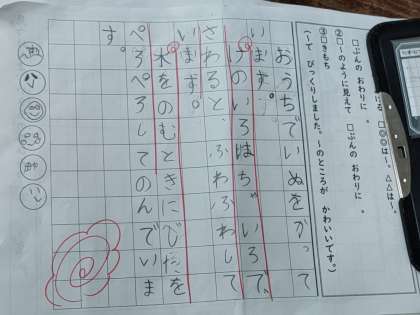 ける □◎◎は～。△△は～。
□ぶんの おわりに 。
②□～のように見えて □ぶんの おわりに 。
③□きもち
(～て びっくりしました。～のところが かわいいです。)
おうちでいぬをかって
います。
けのいろはちゃいろで、
さわると、ふわふわして
います。
水をのむときに
ぺろぺろしてのんでいま
す。